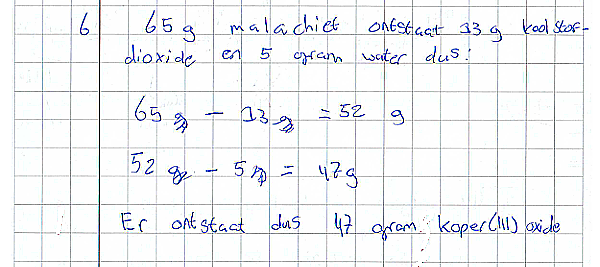 6 65 g malachiet ontstaat 13 g koolstof-
dioxide en 5 gram water dus:
65 g - 13 g = 52 g
52 g - 5 g = 47 g
Er ontstaat dus 47 gram koper(III) oxide